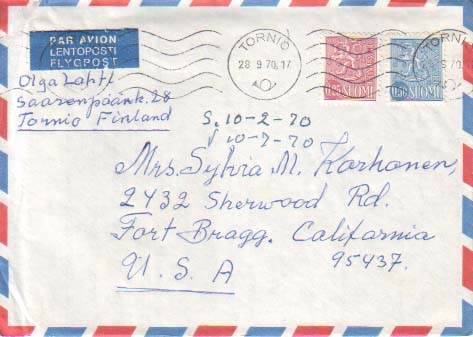 PAR AVION
LENTOPOSTI
FLYGPOST
TORNIO
28.9.70.17
TORNIO
SUOMI
SUOMI
Olga Lahti
Saarenpäänk. 28
Tornio Finland
S. 10-2-70
10-7-70
Mrs. Sylvia M. Korhonen,
2432 Sherwood Rd.
Fort Bragg. California
95437.
U. S. A